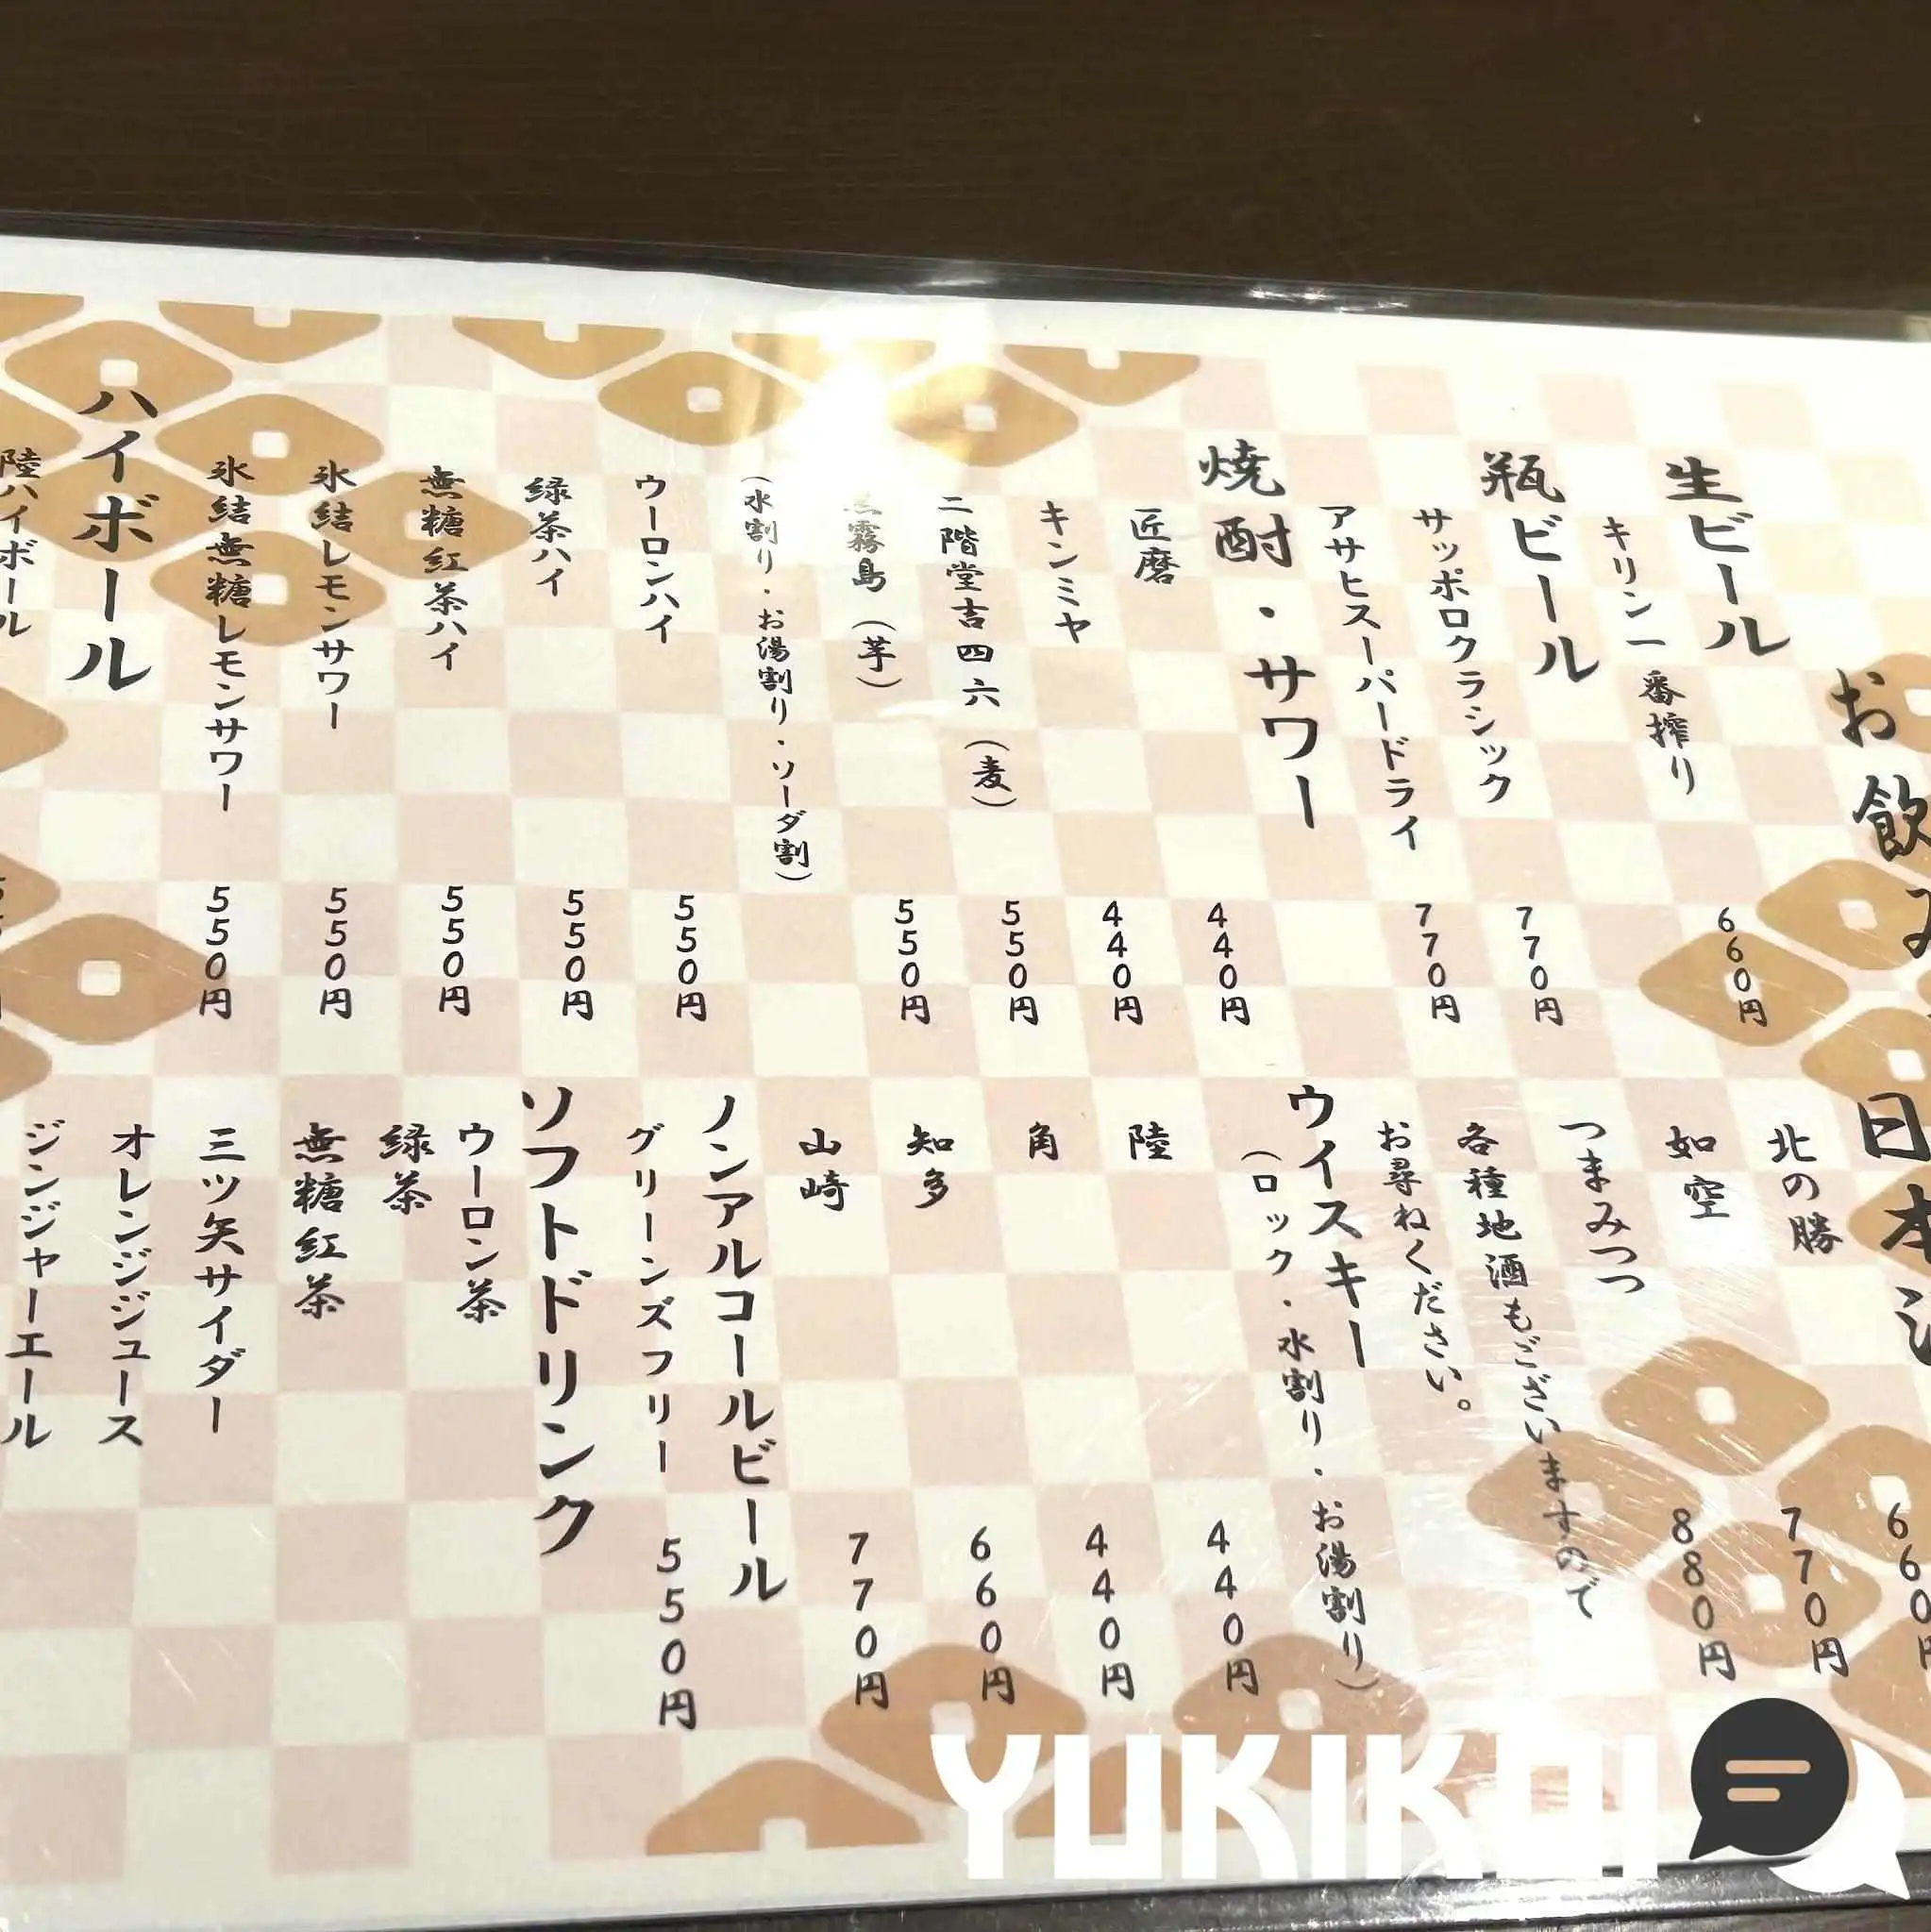 お飲み
生ビール
キリン一番搾り 660円
瓶ビール
サッポロクラシック 770円
アサヒスーパードライ 770円
焼酎・サワー
匠磨 440円
キンミヤ 440円
二階堂吉四六（麦） 550円
霧島（芋） 550円
（水割り・お湯割り・ソーダ割）
ウーロンハイ 550円
緑茶ハイ 550円
無糖紅茶ハイ 550円
氷結レモンサワー 550円
氷結無糖レモンサワー 550円
ハイボール
陸ハイボール
日本酒
660円
北の勝 770円
如空 880円
つまみつつ
各種地酒もございますので
お尋ねください。
ウイスキー
（ロック・水割り・お湯割り）
陸 440円
角 440円
知多 660円
山崎 770円
ノンアルコールビール
グリーンズフリー 550円
ソフトドリンク
ウーロン茶
緑茶
無糖紅茶
三ツ矢サイダー
オレンジジュース
ジンジャーエール
YUKIKOI